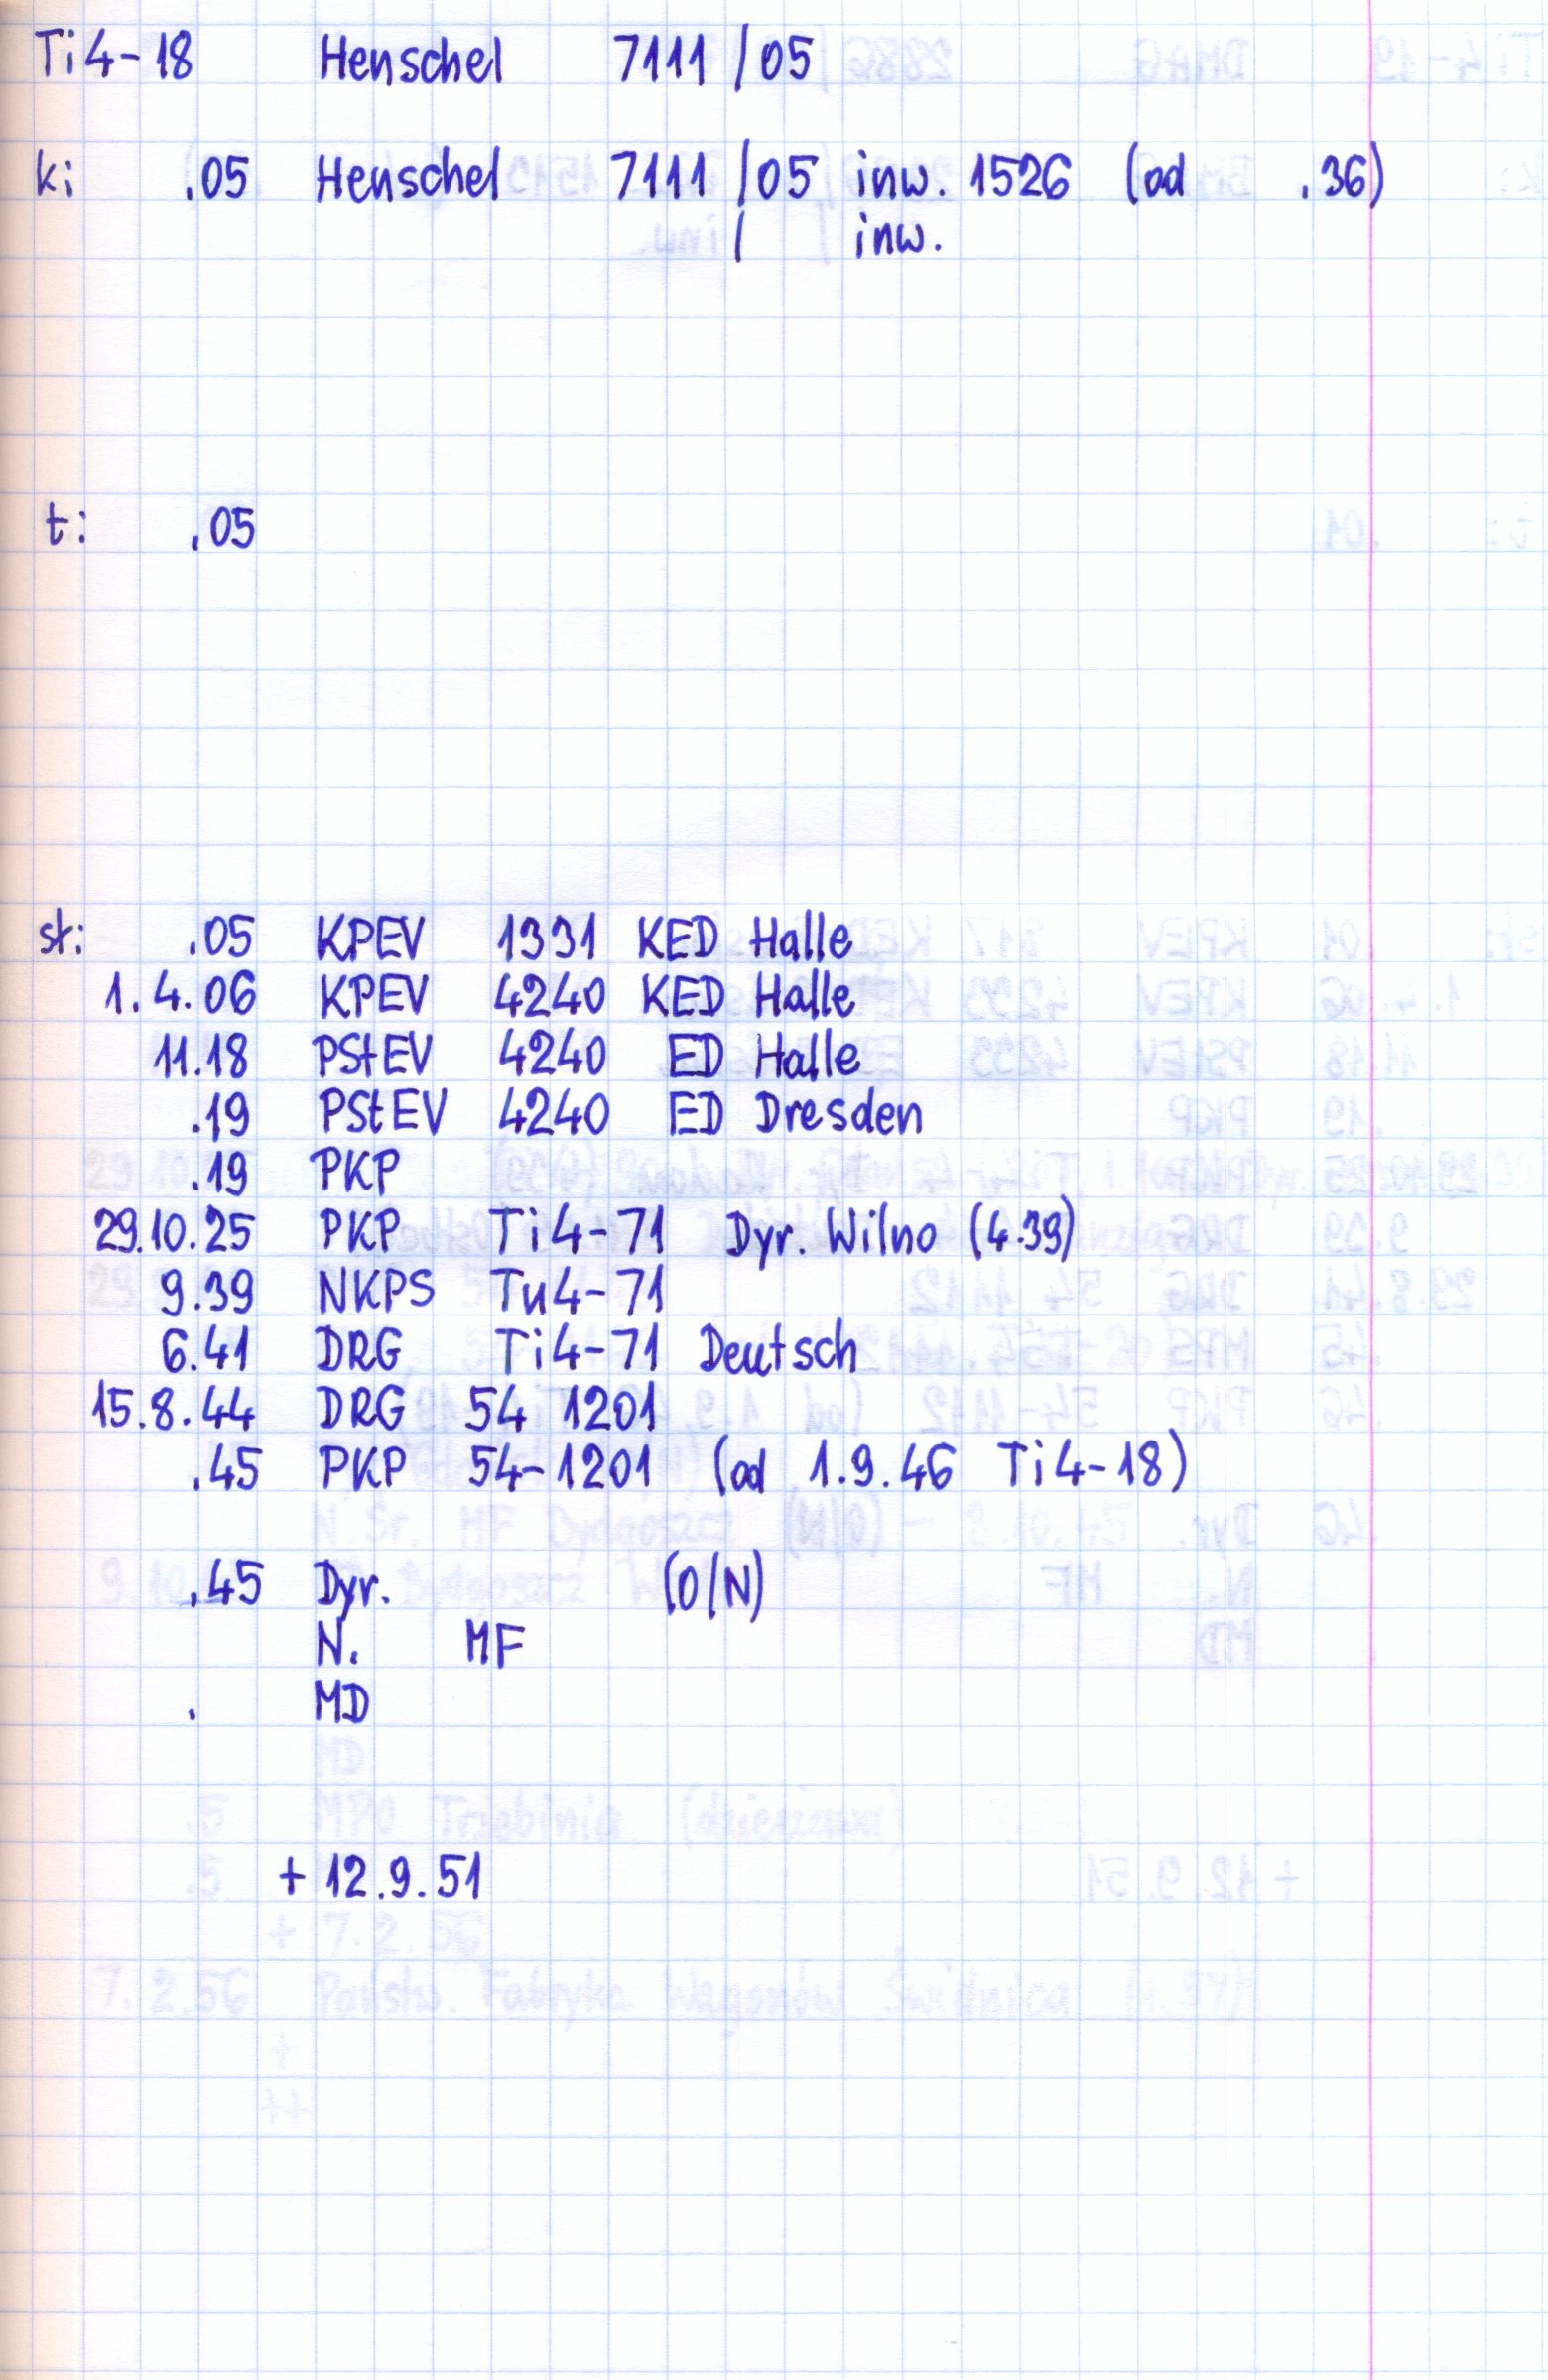 Ti4-18 Henschel 7111 /05
ki .05 Henschel 7111 /05 inw. 1526 (od .36)
/ inw.
t: .05
st: .05 KPEV 1331 KED Halle
1.4.06 KPEV 4240 KED Halle
11.18 PStEV 4240 ED Halle
.19 PStEV 4240 ED Dresden
.19 PKP
29.10.25 PKP Ti4-71 Dyr. Wilno (4.39)
9.39 NKPS Tu4-71
6.41 DRG Ti4-71 Deutsch
15.8.44 DRG 54 1201
.45 PKP 54-1201 (od 1.9.46 Ti4-18)
.45 Dyr. (O/N)
N. MF
. MD
+ 12.9.51